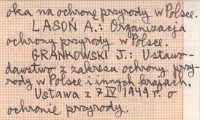 oka na ochronę przyrody w Polsce.
LASOŃ A.: Organizacja
ochrony przyrody w Polsce.
GRANKOWSKI J.: Ustawo-
dawstwo z zakresu ochrony przy-
rody w Polsce i innych krajach.
Ustawa z 7 IV 1949 r. o
ochronie przyrody.